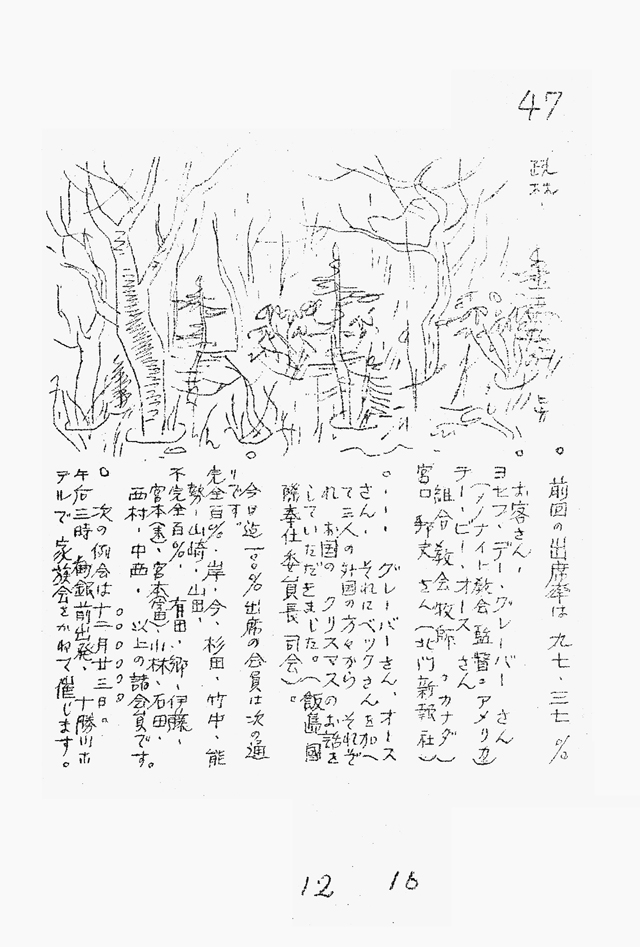 47
疎林
前回の出席率は 九七、三七 %
お客さん、
ヨセフ・デー・グレーバー さん
(メノナイト教会 監督。アメリカ)
チー・ビー・オース さん
組合教会牧師 。カナダ)
宮口 郭実 さん(北門新報社)
グレーバーさん、オース
さん、 それにベックさんを加へ
て三人の外国の方々から それぞ
れ お国の クリスマスのお話を
していただきました。(飯島 國
際奉仕委員長 司会)。
今日迠一〇〇%出席の会員は次の通
りです。
完全百%・岸・今、杉田・竹中・能
勢・山崎・山田、
不完全百%、 有田・郷・伊藤、
宮本(逸)、宮本(富)小林、石田、
西村・中西、 以上の諸会員です。
○○○○○○
○ 次の例会は十二月廿三日。
午后三時 銀前出発、十勝川ホ
テルで 家族会をかねて催します。
12 16